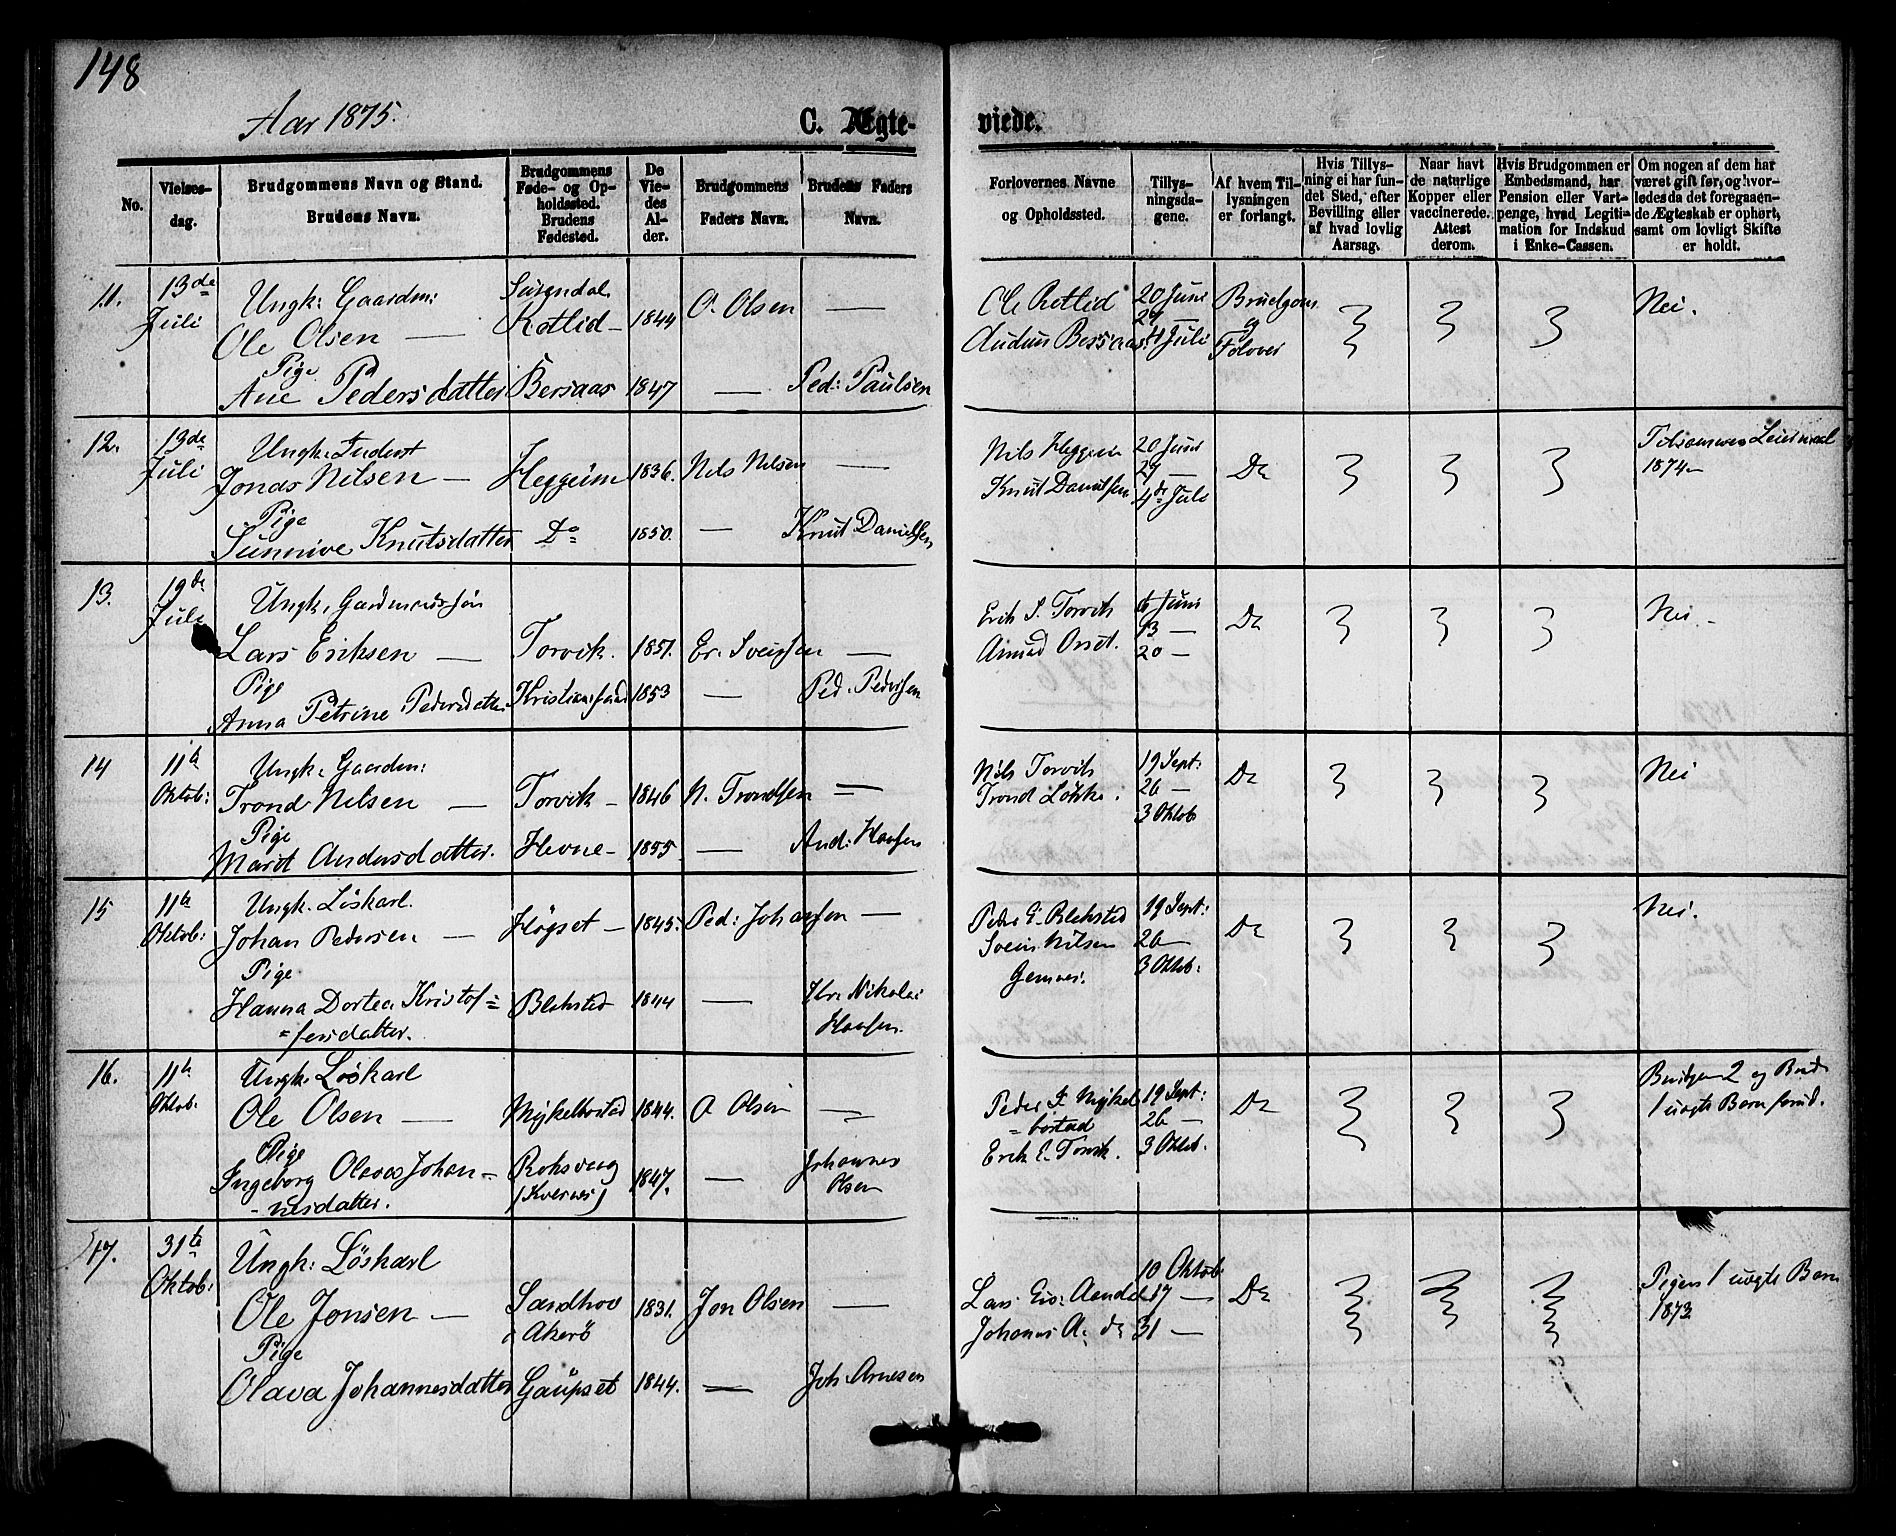 148
Aar 1875.
C. Ægte- viede.
No.
Vielses-
dag.
Brudgommens Navn og Stand.
Brudens Navn.
Brudgommens
Føde- og Op-
holdssted.
Brudens
Fødested.
De
Vie-
des
Al-
der.
Brudgommens
Faders Navn.
Brudens Faders
Navn.
Forlovernes Navne
og Opholdssted.
Tillys-
ningsda-
gene.
Af hvem Til-
lysningen
er forlangt.
Hvis Tillys-
ning ei har fun-
det Sted, efter
Bevilling eller
af hvad lovlig
Aarsag.
Naar havt
de naturlige
Kopper eller
vaccinerede.
Attest
derom.
Hvis Brudgommen er
Embedsmand, har
Pension eller Vart-
penge, hvad Legiti-
mation for Indskud
i Enke-Cassen.
Om nogen af dem har
været gift før, og hvor-
ledes da det foregaaen-
de Ægteskab er ophørt,
samt om lovligt Skifte
er holdt.
11. 13de Juli
Ungk: Gaardm:
Ole Olsen — Surendal Rotlid — 1844 O. Olsen —
Pige
Ane Pedersdatter Bersaas 1847 — Ped: Paulsen
Ole Rotlid 20 Juni Brudgom Nei.
27 — og
Audun Bersaas 4 Juli Forlover
12. 13de Juli
Ungk: Inderst
Jonas Nilsen — Heggeim 1836. Nils Nilsen —
Pige
Sünnive Knutsdatter Do 1850. — Knut Danielsen
Nils Heggeim 20 Juni Do Leiermaal
27 — 1874 —
Knut Danielsen 4de Juli
13. 19de Juli
Ungk: Gaardmandssøn
Lars Eriksen — Torvik. 1851. Er. Sveissen —
Pige
Anna Petrine Pedersdatter Kristianssund 1853 — Ped. Pedersen
Erik S. Torvik 6 Juni Do Nei. —
13 —
Orset. 20 —
14 11te Oktob:
Ungk: Gaardm:
Trond Nilsen — Torvik — 1846 N. Trondsen —
Pige
Marit Andersdatter. Hevne — 1855 — And: Hansen
Nils Torvik 19 Sept: Do Nei
Trond Løkke. 26 —
3 Oktob
15 11te Oktob:
Ungk. Löskarl.
Johan Pedersen — Høgset — 1845. Ped: Johansen —
Pige
Hanna Dortea Kristof= Bleksted 1844 — Kr. Nikolai
=fersdatter. Hansen.
Peder E. Bleksted 19 Sept: Do Nei.
Svein Nilsen 26 —
Gemnes. 3 Oktob:
16. 11te Oktob:
Ungk. Löskarl
Ole Olsen — Mykelbostad 1844. O Olsen —
Pige
Ingeborg Olava Johan- Roksvaag 1847. — Johannes
-nesdatter. (Kvernes) Olsen
Peder I. Mykel 19 Sept: Do Brudgom 2 og Brud
=bostad 26 — 1 uægte Barn forud.
Erik E. Torvik. 3 Oktob.
17. 31te Oktob:
Ungk: Löskarl
Ole Jonsen — Sandhov i Akerö 1831. Jon Olsen —
Pige
Olava Johannesdatter Gaupset 1844. — Joh Arnesen
10 Oktob Pigen 1 uægte Barn
Lars 17 — Do 1873
Johannes A. do 31 —